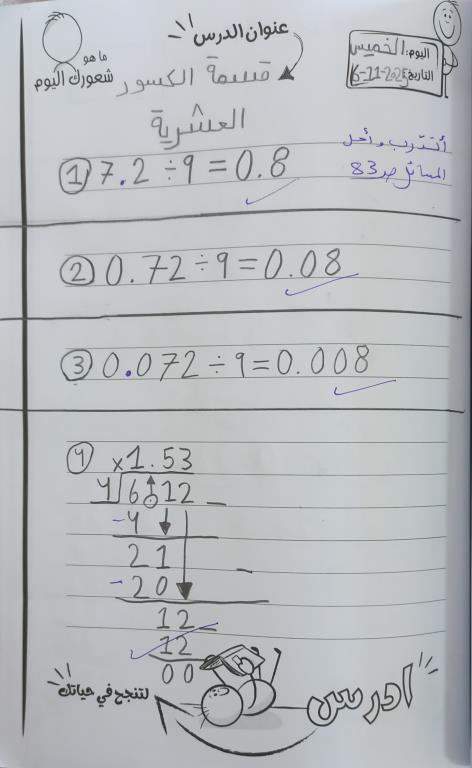 عنوان الدرس
اليوم: الخميس
التاريخ: 6-11-2025
ما هو
شعورك اليوم
قسمة الكسور
العشرية
أتدرب وأحل
المسائل ص 83
① 7.2 ÷ 9 = 0.8
② 0.72 ÷ 9 = 0.08
③ 0.072 ÷ 9 = 0.008
④ × 1.53
4 6.12
- 4
21
- 20
12
12
00
ادرس
لتنجح في حياتك